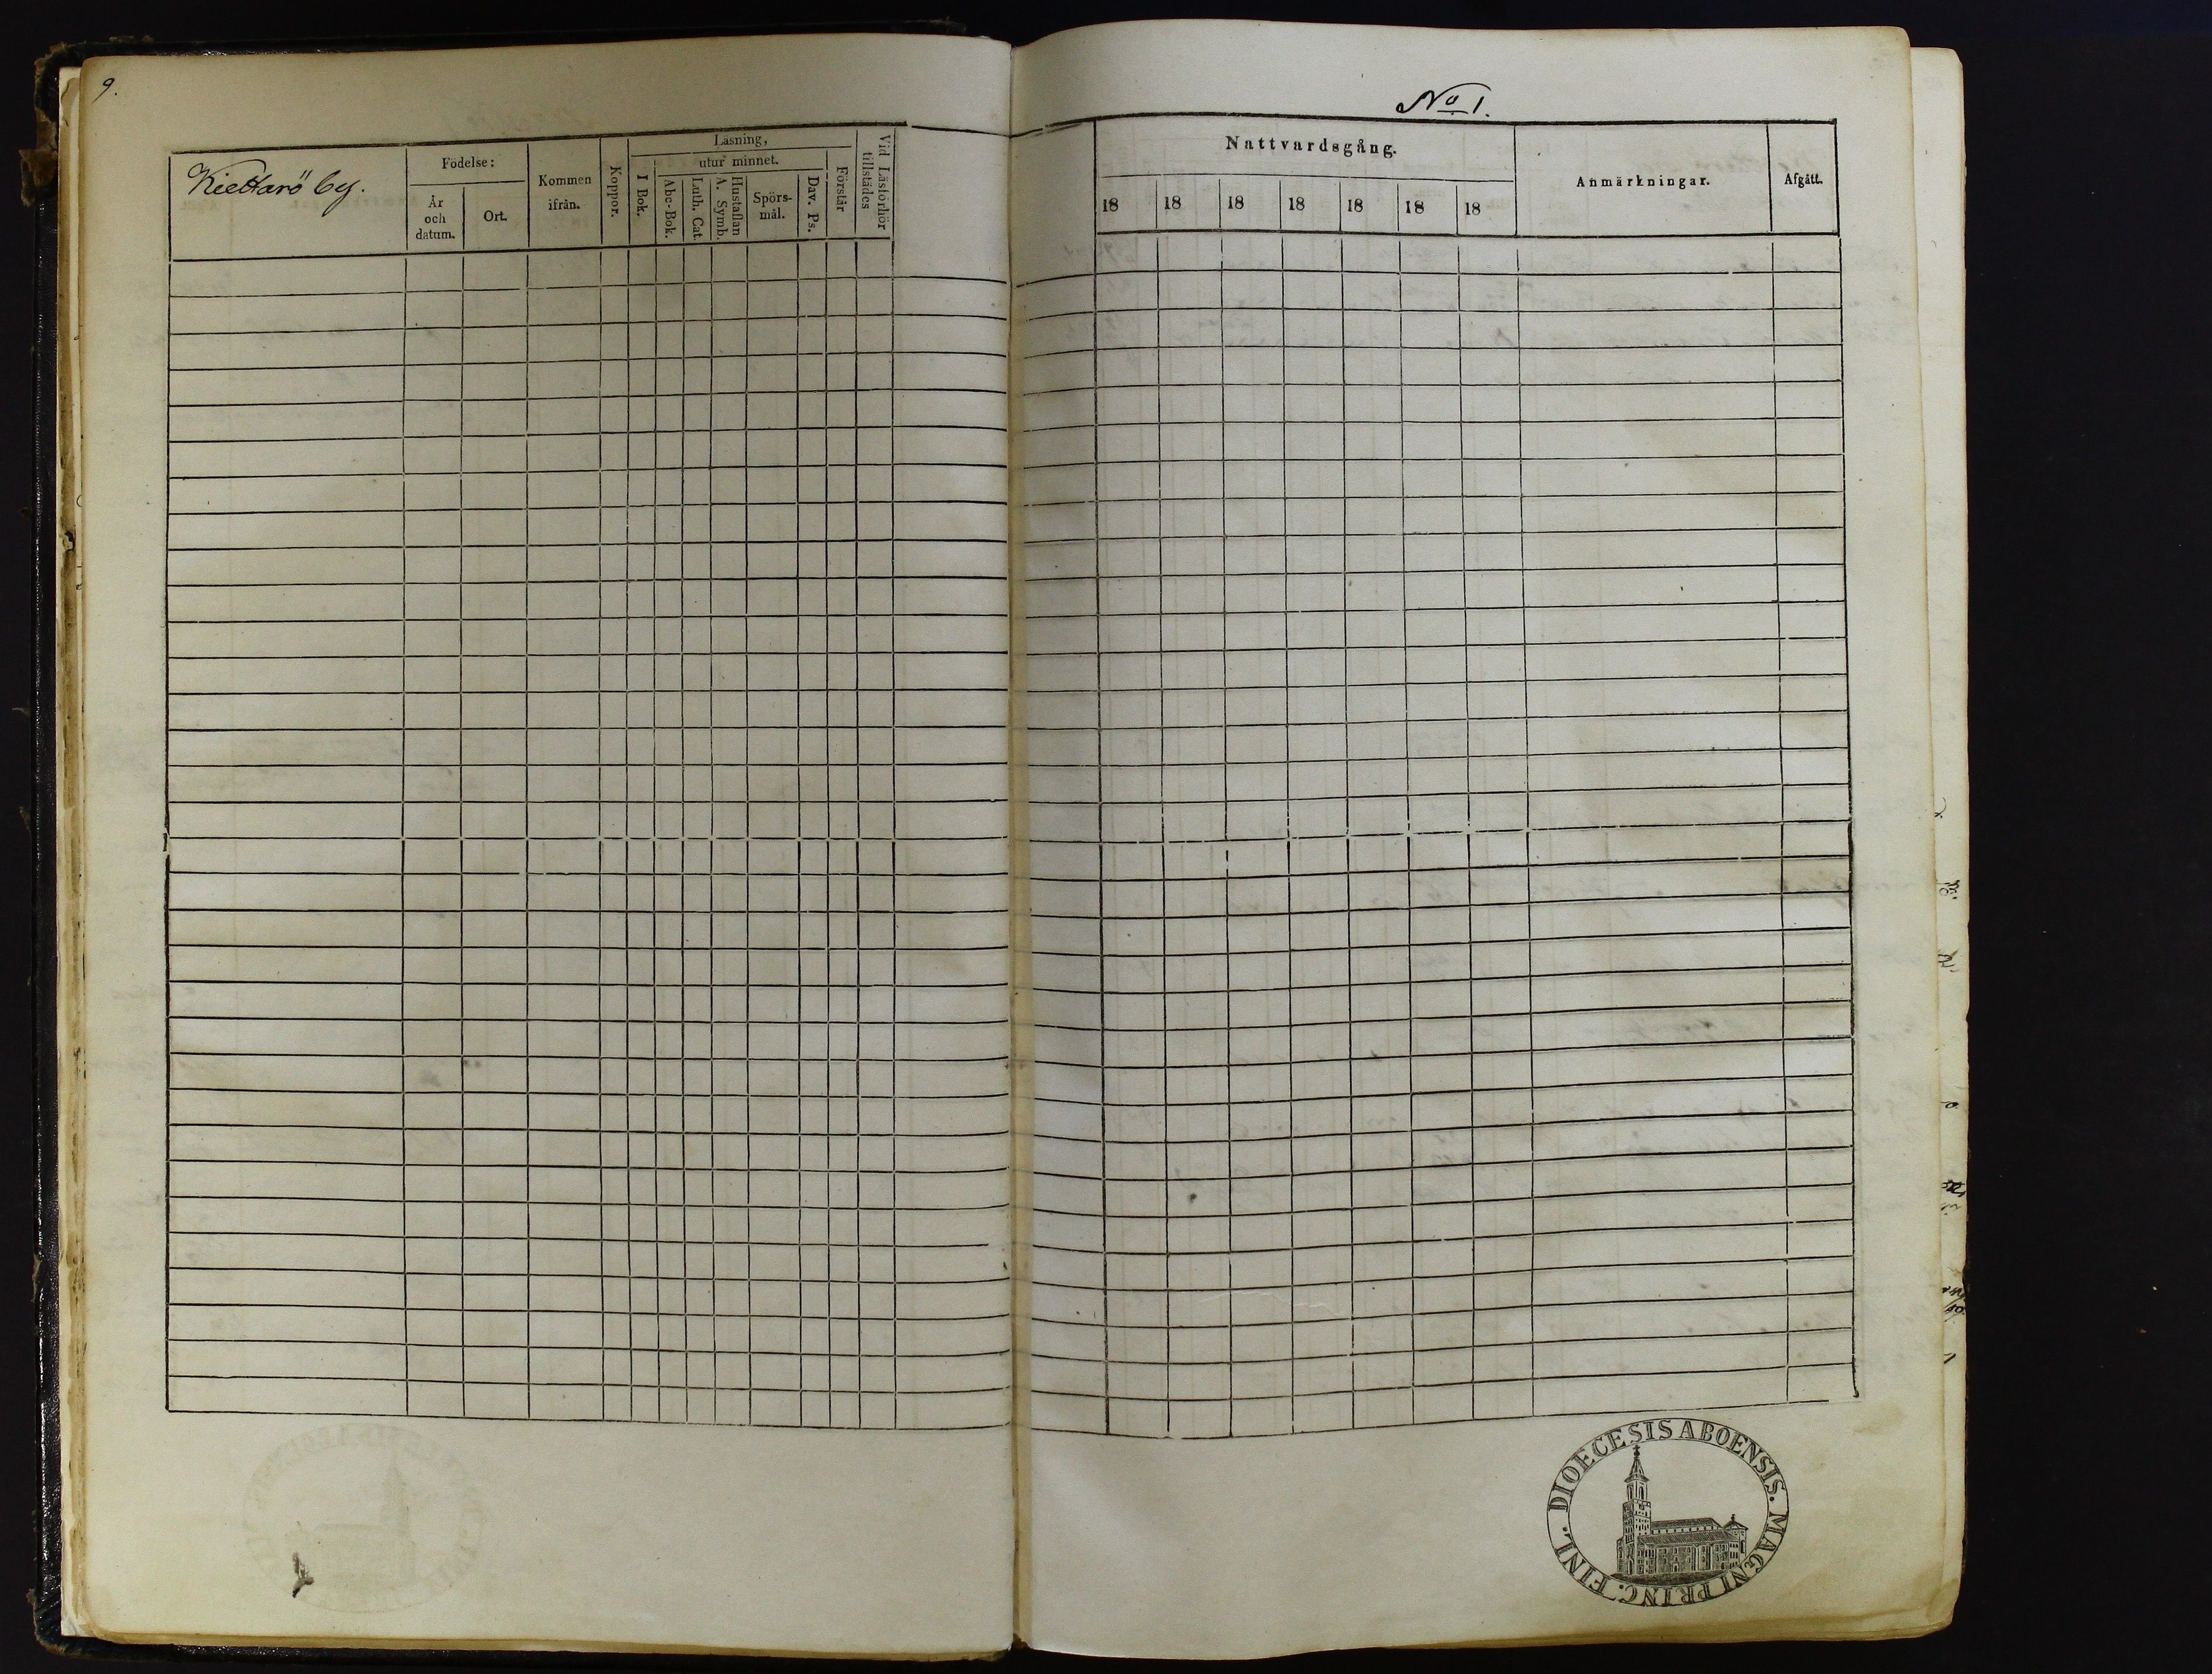 9.
No 1.
Kiettarö by.
Födelse:
År
och
datum.
Ort.
Kommen
ifrån.
Koppor.
Läsning,
utur minnet.
I Bok.
Abc-Bok.
Luth. Cat.
Hustaflan
A. Symb.
Spörs-
mål.
Dav. Ps.
Förstår
Vid Läsförhör
tillstädes
Nattvardsgång.
18 18 18 18 18 18 18
Anmärkningar.
Afgått.
DIOECESIS ABOENSIS. MAGNI PRINC. FINL.